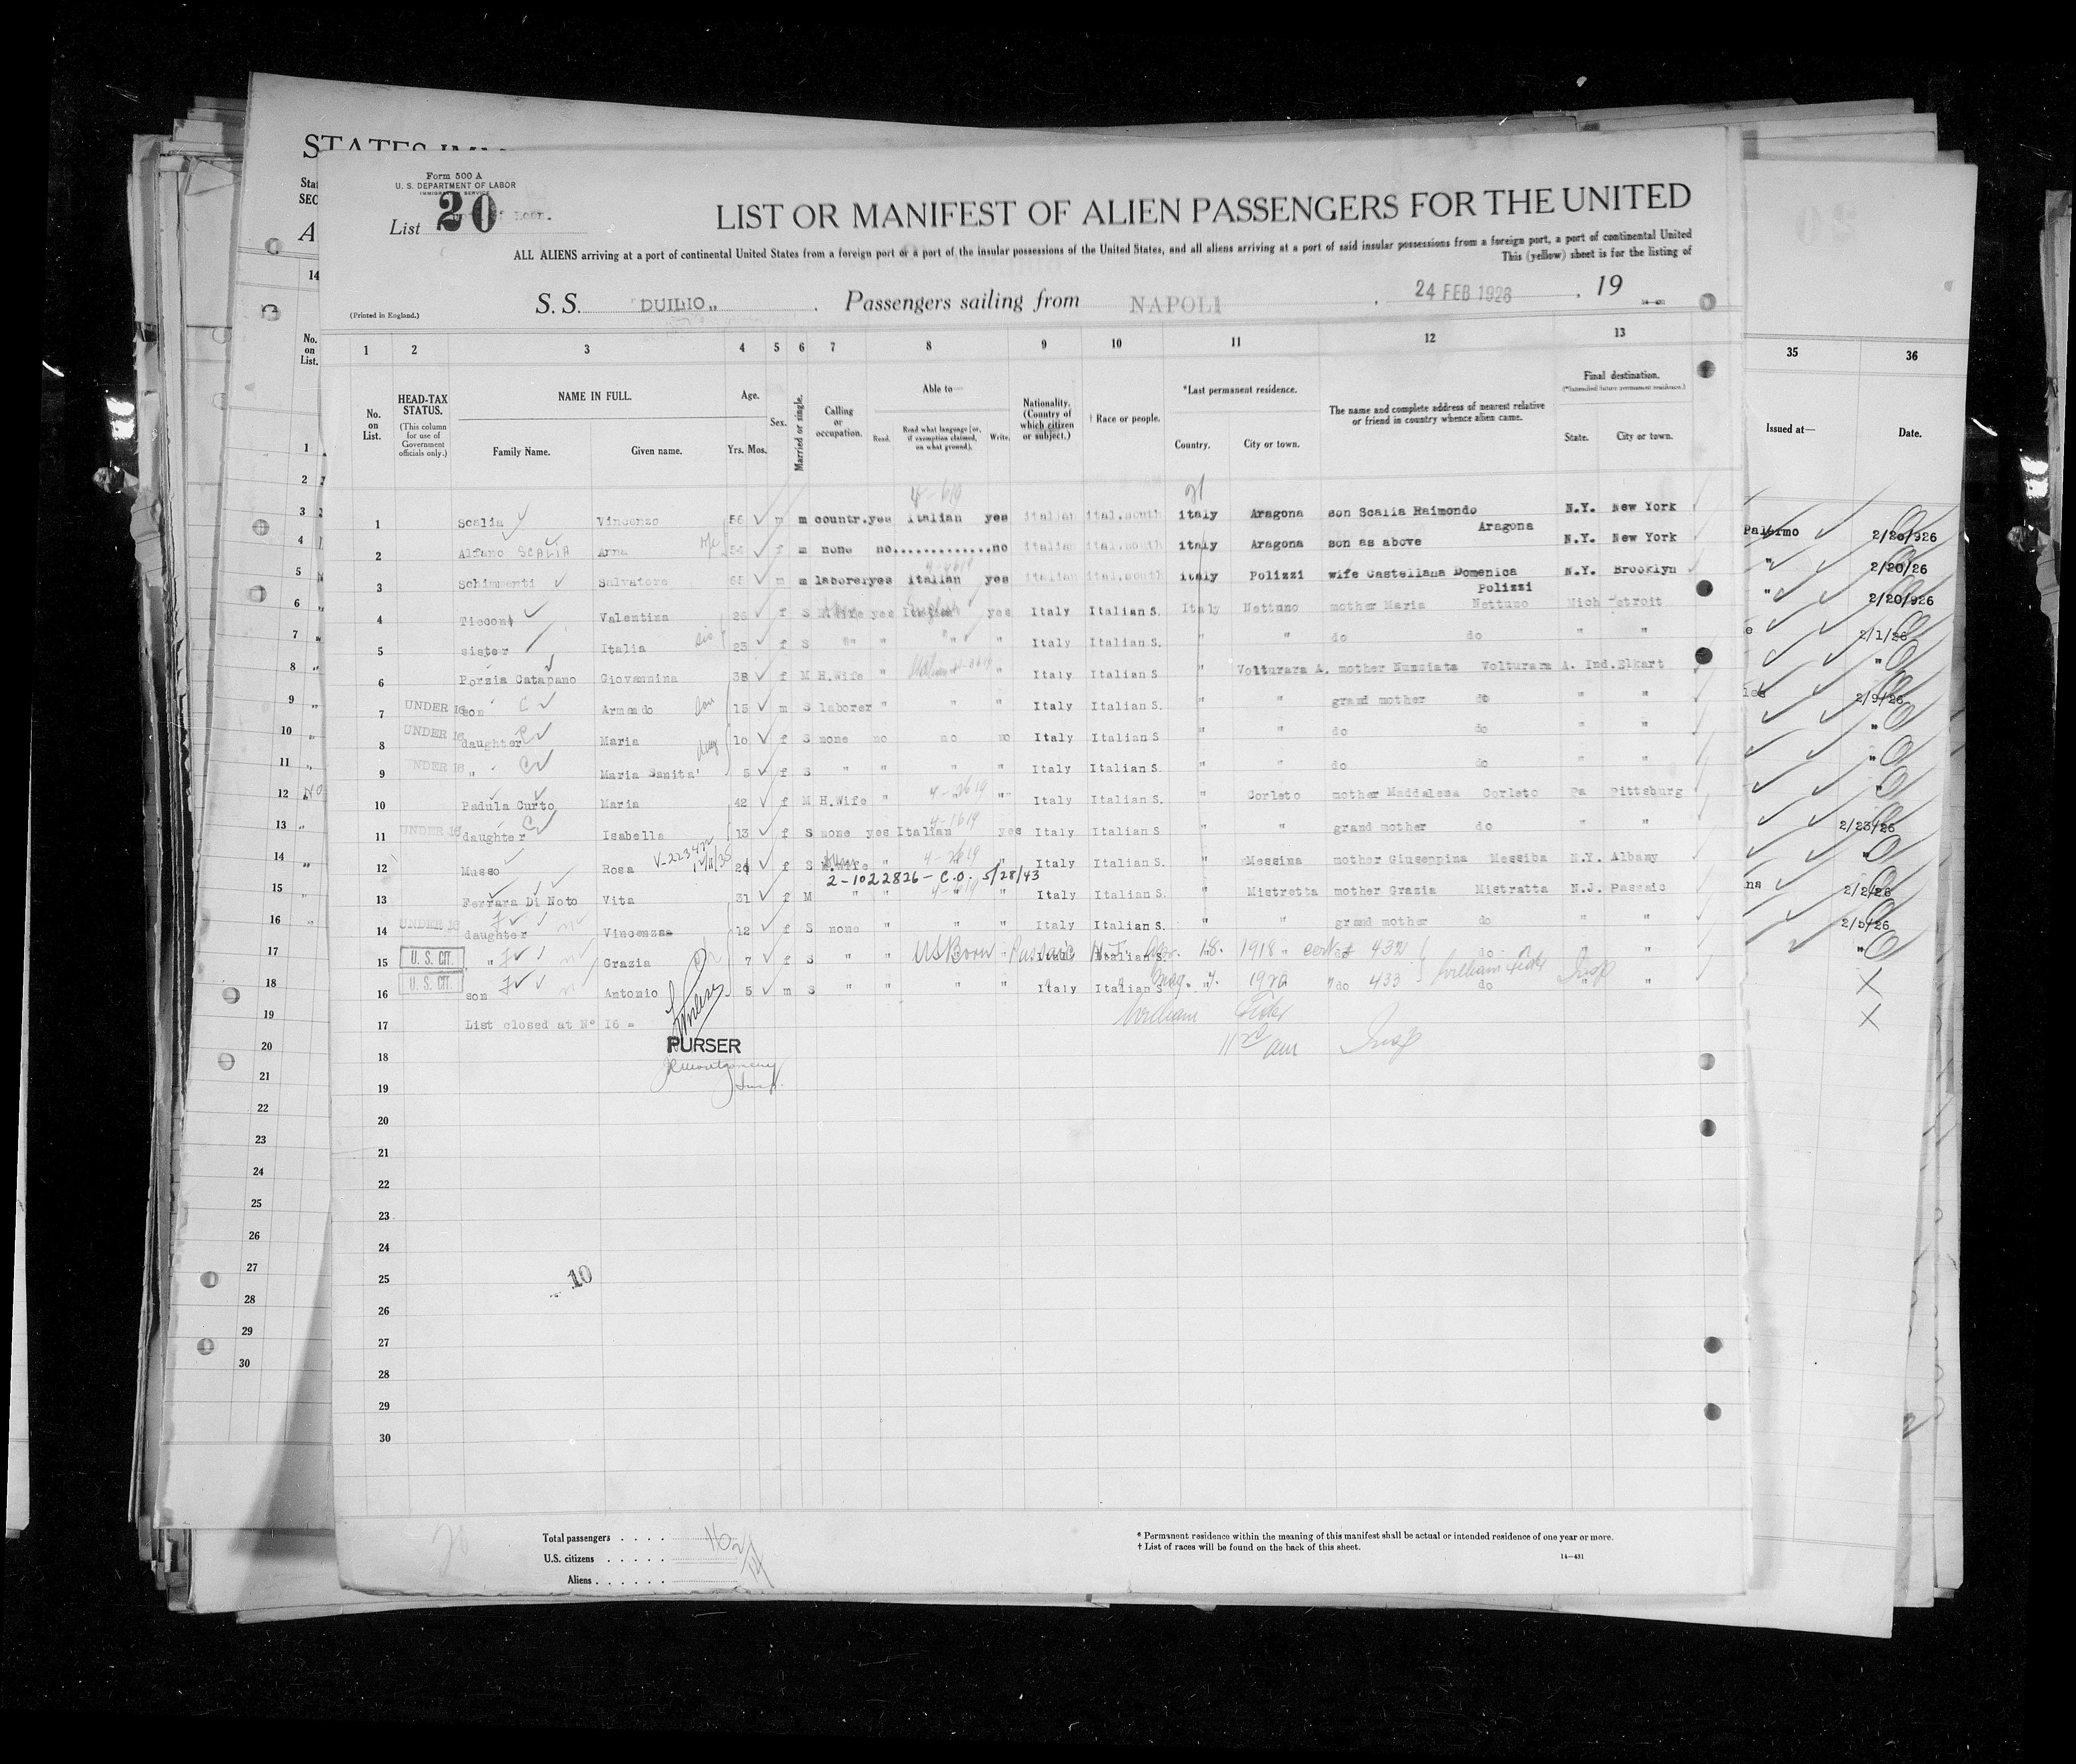 STATES IMM
Form 500 A
U. S. DEPARTMENT OF LABOR
IMMIGRATION SERVICE
List 20
LIST OR MANIFEST OF ALIEN PASSENGERS FOR THE UNITED
ALL ALIENS arriving at a port of continental United States from a foreign port or a port of the insular possessions of the United States, and all aliens arriving at a port of said insular possessions from a foreign port, a port of continental United
This (yellow) sheet is for the listing of
(Printed in England.)
S. S. "DUILIO" . Passengers sailing from NAPOLI , 24 FEB 1926 , 19
1 2 3 4 5 6 7 8 9 10 11 12 13
No. on List.
HEAD-TAX STATUS.
(This column for use of Government officials only.)
NAME IN FULL.
Family Name. Given name.
Age.
Yrs. Mos.
Sex.
Married or single.
Calling or occupation.
Able to—
Read. Read what language (or, if exemption claimed, on what ground). Write.
Nationality. (Country of which citizen or subject.)
† Race or people.
*Last permanent residence.
Country. City or town.
The name and complete address of nearest relative or friend in country whence alien came.
Final destination.
(*Intended future permanent residence.)
State. City or town.
35 36
Issued at— Date.
4-619 21
1 Scalia Vincenzo 56 m m countr. yes Italian yes italian ital.south italy Aragona son Scalia Raimondo Aragona N.Y. New York
2 Alfano SCALIA Anna 54 f m none no.............no italian ital.south italy Aragona son as above N.Y. New York
3 Schimmenti Salvatore 65 m m laborer yes Italian yes italian ital.south italy Polizzi wife Castellana Domenica Polizzi N.Y. Brooklyn
4 Ticconi Valentina 26 f S H.Wife yes Italian yes Italy Italian S. Italy Nettuno mother Maria Nettuno Mich Detroit
5 sister Italia sis 23 f S " " " " Italy Italian S. " " do do " "
6 Porzia Catapano Giovannina 38 f M H.Wife " " " Italy Italian S " Volturara A. mother Nunziata Volturara A. Ind. Elkart
7 UNDER 16 son Armando son 15 m S laborer " " " Italy Italian S. " " grand mother do " "
8 UNDER 16 daughter Maria 10 f S none no no no Italy Italian S " " do do " "
9 UNDER 16 " Maria Sanita' 5 f S " " " " Italy Italian S. " " do do " "
10 Padula Curto Maria 42 f M H.Wife " " " Italy Italian S. " Corleto mother Maddalena Corleto Pa Pittsburg
11 UNDER 16 daughter Isabella 13 f S none yes Italian yes Italy Italian S. " " grand mother do " "
12 Musso Rosa 24 f S H.Wife " " Italy Italian S. " Messina mother Giuseppina Messiba N.Y. Albany
2-1022826 - C.O. 5/28/43
13 Ferrara Di Noto Vita 31 f M " " " " Italy Italian S. " Mistretta mother Grazia Mistratta N.J. Passaic
14 UNDER 16 daughter Vincenza 12 f S none " " " Italy Italian S. " " grand mother do " "
15 U. S. CIT. " Grazia 7 f S " " US Born Passaic N.J. 18. 1918 cert # 432 do "
16 U. S. CIT. son Antonio 5 m S " " " " Italy Italian S " do 433 do " "
17 List closed at N° 16 =
William
PURSER
Insp
18
19
20
21
22
23
24
25
26
27
28
29
30
10
Palermo 2/20/926
" 2/20/26
" 2/20/926
2/1/26
"
2/9/26
"
"
"
"
2/23/26
"
2/2/26
2/5/26
"
Total passengers . . . . . 16
U.S. citizens . . . . . . 2
Aliens . . . . . . 14
* Permanent residence within the meaning of this manifest shall be actual or intended residence of one year or more.
† List of races will be found on the back of this sheet.
14—431